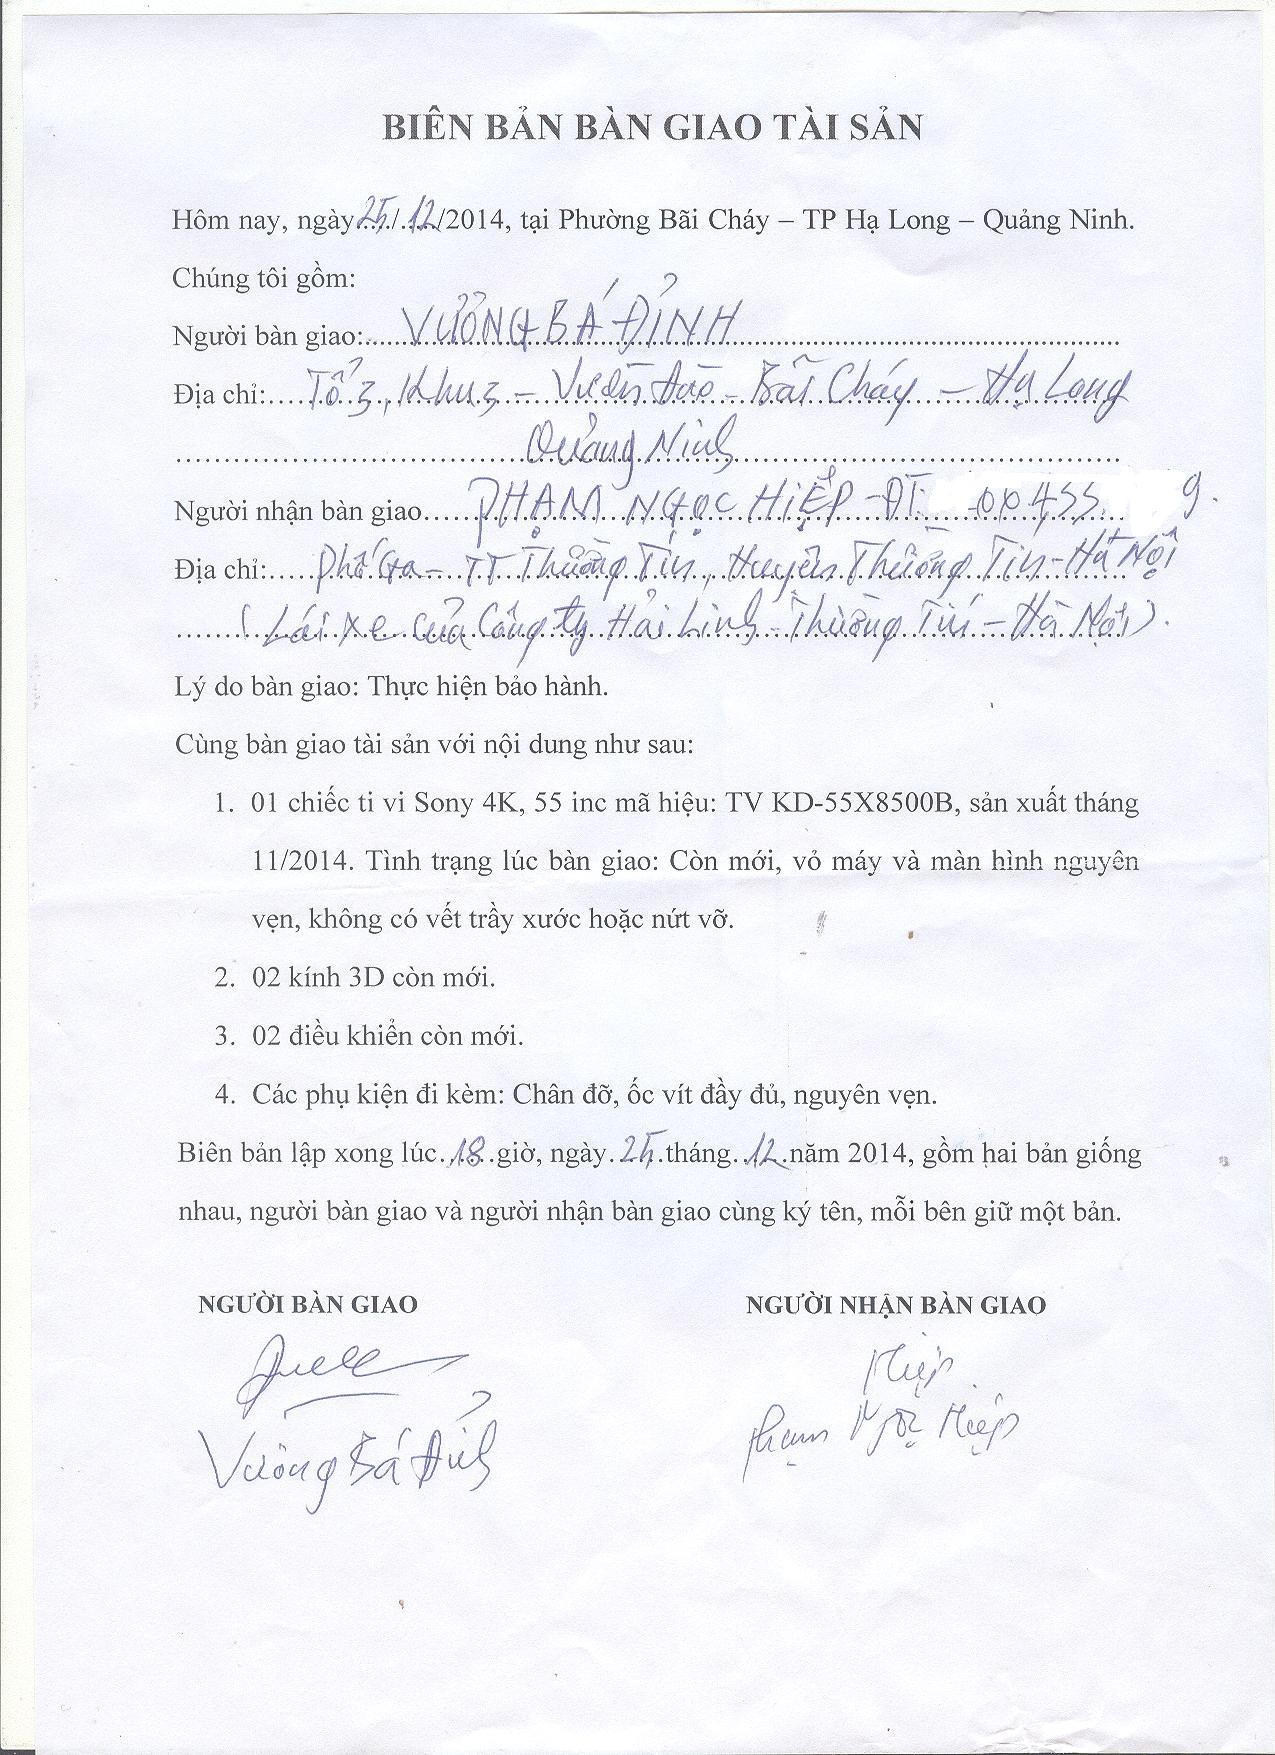 BIÊN BẢN BÀN GIAO TÀI SẢN
Hôm nay, ngày 25/12/2014, tại Phường Bãi Cháy – TP Hạ Long – Quảng Ninh.
Chúng tôi gồm:
Người bàn giao: VƯƠNG BÁ ĐỈNH
Địa chỉ: Tổ 3, Khu 3 – Vườn Đào – Bãi Cháy – Hạ Long
Quảng Ninh
Người nhận bàn giao PHẠM NGỌC HIỆP – ĐT: 00455 9.
Địa chỉ: Phố Ga – TT Thường Tín, Huyện Thường Tín – Hà Nội
(Lái xe của Công ty Hải Linh – Thường Tín – Hà Nội).
Lý do bàn giao: Thực hiện bảo hành.
Cùng bàn giao tài sản với nội dung như sau:
1. 01 chiếc ti vi Sony 4K, 55 inc mã hiệu: TV KD-55X8500B, sản xuất tháng
11/2014. Tình trạng lúc bàn giao: Còn mới, vỏ máy và màn hình nguyên
vẹn, không có vết trầy xước hoặc nứt vỡ.
2. 02 kính 3D còn mới.
3. 02 điều khiển còn mới.
4. Các phụ kiện đi kèm: Chân đỡ, ốc vít đầy đủ, nguyên vẹn.
Biên bản lập xong lúc 18 giờ, ngày 25 tháng 12 năm 2014, gồm hai bản giống
nhau, người bàn giao và người nhận bàn giao cùng ký tên, mỗi bên giữ một bản.
NGƯỜI BÀN GIAO NGƯỜI NHẬN BÀN GIAO
Hiệp
Vương Bá Đỉnh Phạm Ngọc Hiệp